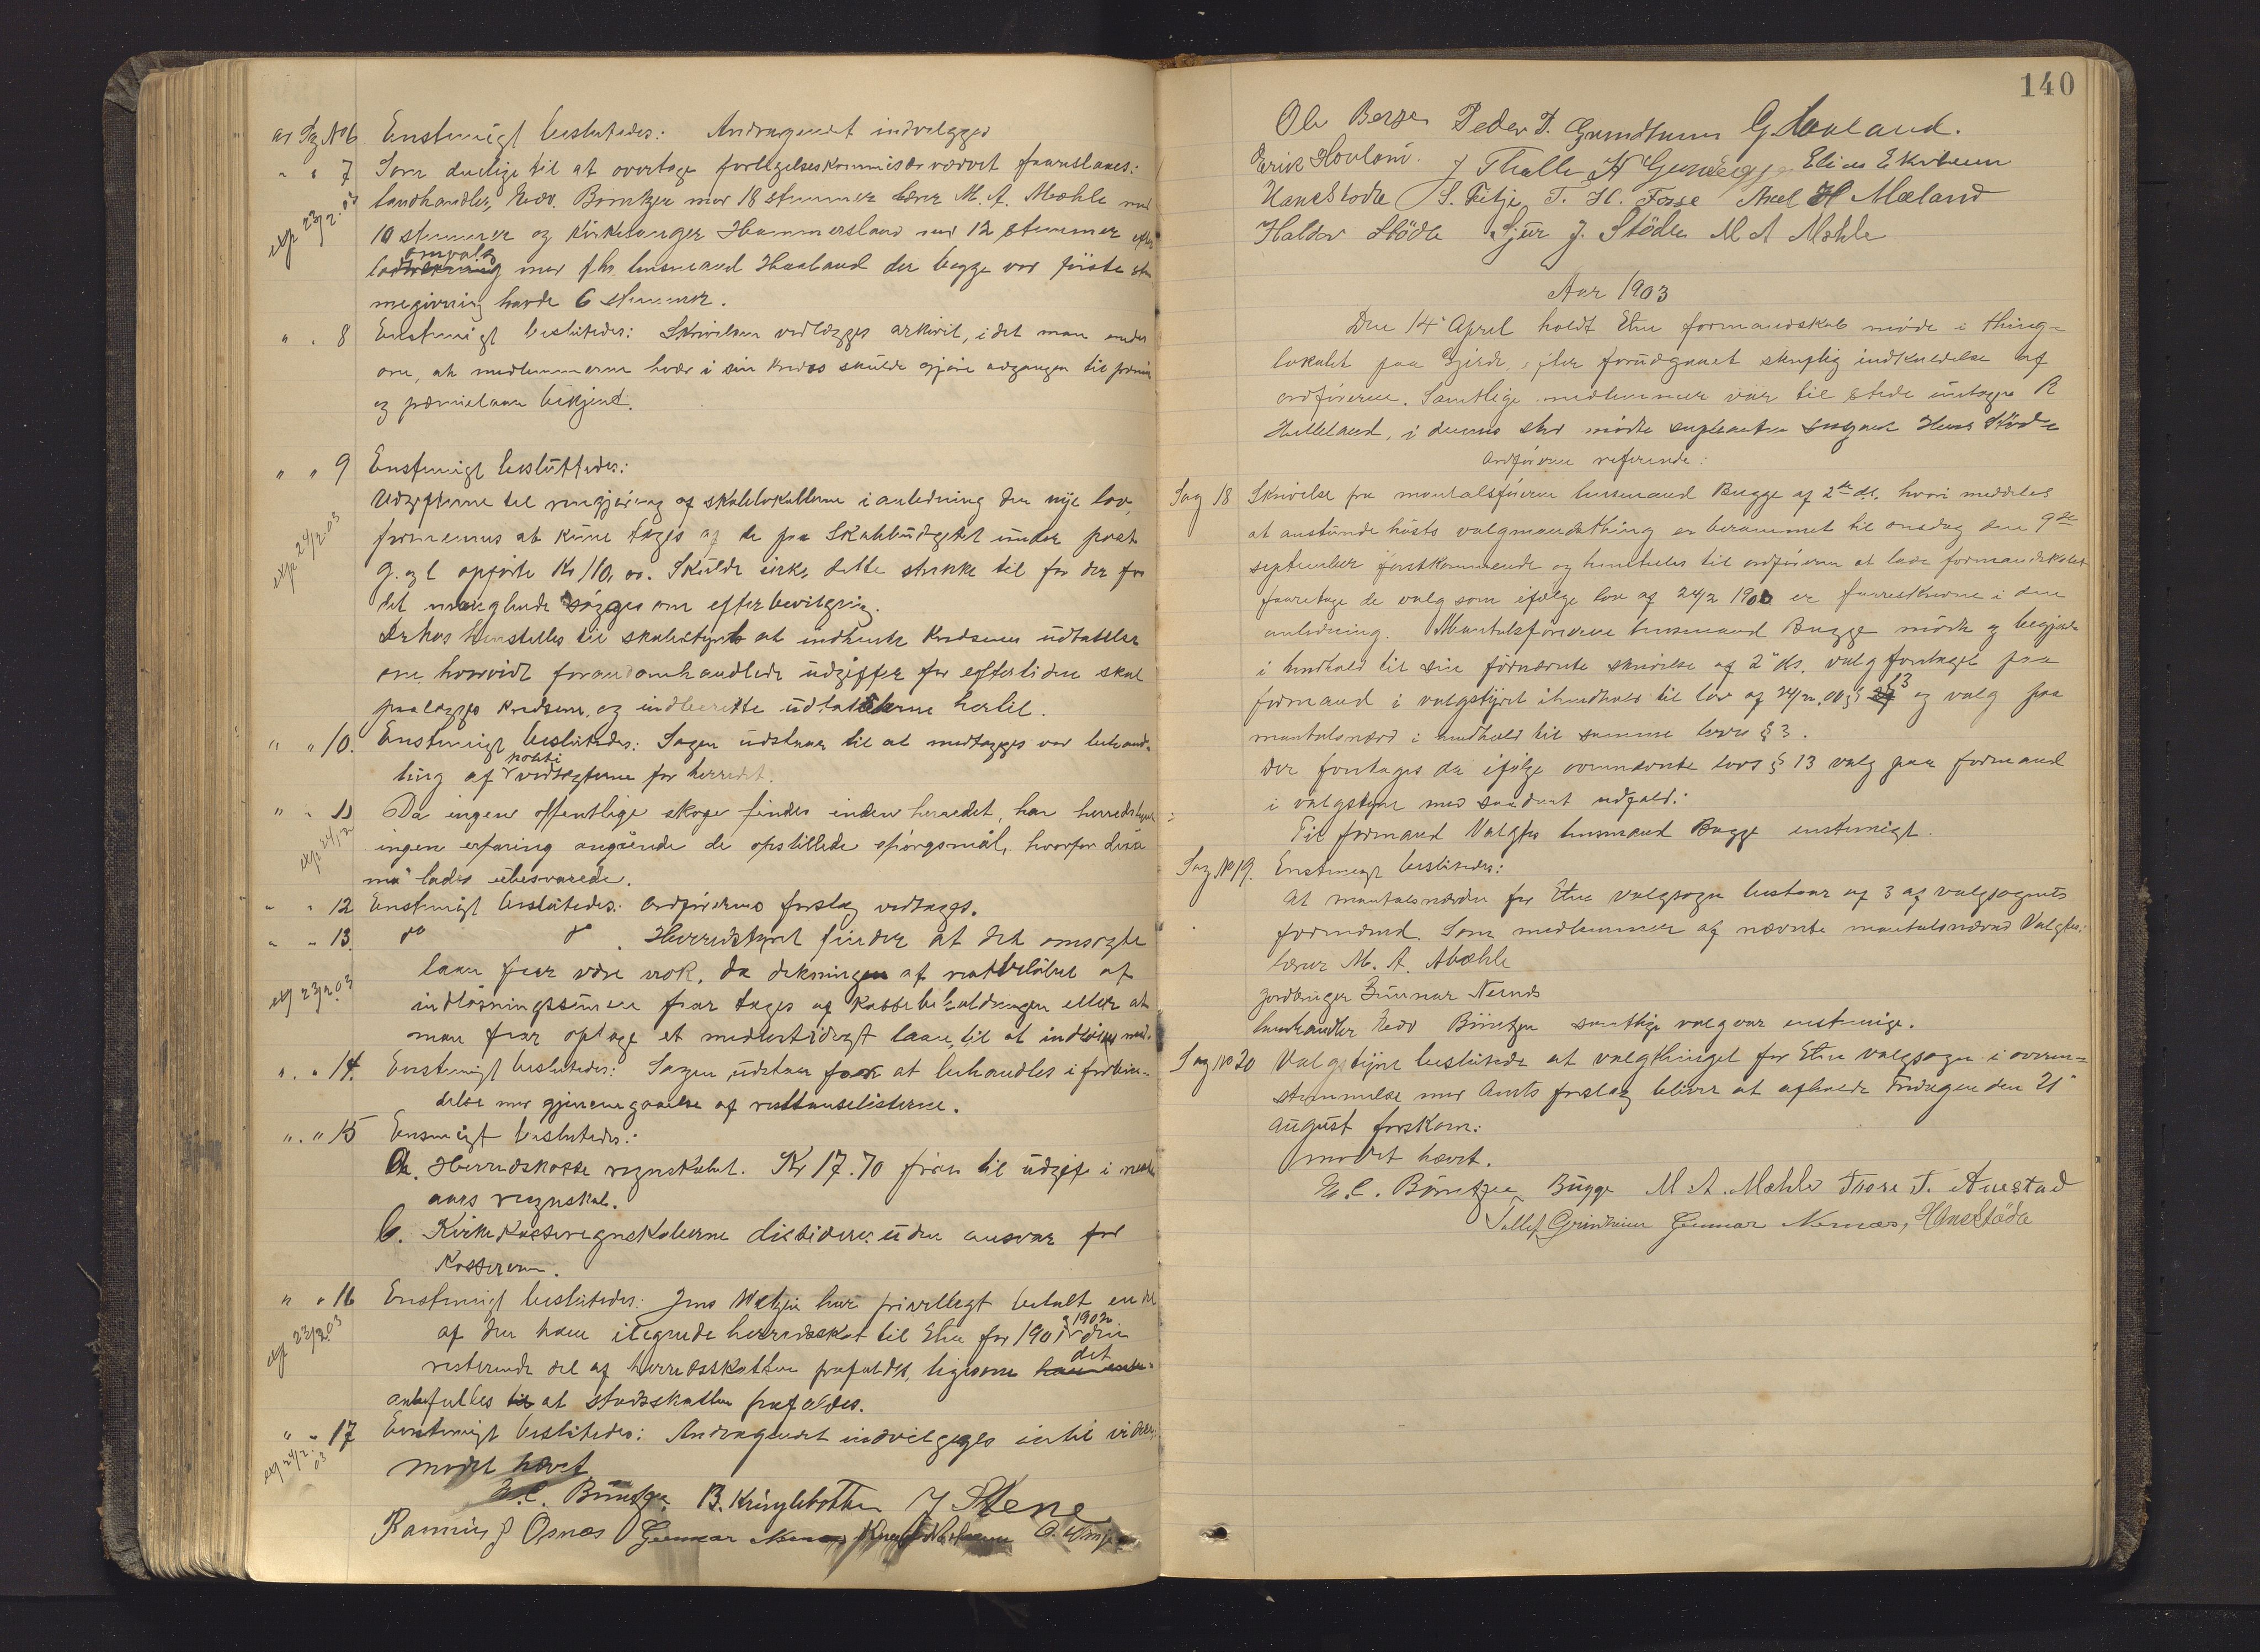 ar Sag No 6. Enstemigt beslutedes: Andragendet indvilgges
" " 7 Som duelige til at overtage forligelseskommisærvervet foreslaaes:
exp 23/2. 03
landhandler Nedv. Büntzen med 18 stemmer lærer M. A. Mæhle med
10 stemmer og kirkesanger Hammersland med 12 stemmer efter
omvalg
med fhv. lensmand Haaland der begge ved første ste
megivning havde 6 stemmer.
" " 8 Enstemigt beslutedes: Skrivelsen vedlægges arkivet, idet man
om, at medlemmerne hver i sin kreds skulde gjøre adgangen til
og præmielaan bekjent.
" " 9 Enstemigt besluttedes:
exp 24/2 03
Udgifterne til rengjøring af skolelokallerne i anledning den nye lov,
formenes at kune tages af de paa Skolebudgetet under post
g. og l opførte Kr 110,00. Skulde ikke dette strække til faa der for
det manglende søgges om efterbevilgning.
Derhos henstilles til skolestyret at indhente kredsenes udtalelse
om hvorvidt foranomhandlede udgifter for eftertiden skal
paalægges kredsene, og indberette udtalelserne hertil.
" " 10. Enstemigt beslutedes: Sagen udstaar til at medtagges ved behand-
politi
ling af vedtægterne for herredet.
" " 11 Da ingen offentlige skoge findes inden herredet, har herredstyret
exp 24/2
ingen erfaring angående de opstillede spørgsmål, hvorfor disse
må lades ubesvarede.
" " 12 Enstemigt beslutedes: Ordførerens forslag vedtages.
" " 13. do do. Herredstyret finder at det omsøgte
laan faar være væk, da dekningen af restbeløbet af
exp 23/2 03
indløsningssumen faar tages af kassebeholdningen eller at
man faar optage et midlertidigt laan til at indløse med.
" " 14. Enstemigt beslutedes: Sagen udstaar for at behandles i forbin-
delse med gjennemgaaelse af restanselisterne.
" " 15 Ensmigt beslutedes:
a. Herredskasse regnskabet. Kr 17.70 føres til udgift i næste
aars regnskab.
b. Kirkekasseregnskaberne disideres uden ansvar for
Kassereren.
" " 16 Enstemigt beslutedes: Jens har betalt en del
exp 23/2 03
og 1902
af den ham ilegnede herredsskat til Etne for 1901 den
det
resterende del af herredsskatten frafaldes, ligesom
anbefalles at stadsskatten frafaldes.
" " 17 Enstemigt beslutedes: Andragendet indvilgeges indtil videre.
exp 24/2. 03
mødet hævet
N. C. Büntzen B. Kringlebotten J Stene
Rasmus J Osnes Gunnar Nernes
140
Ole Berge Peder T. Grindheim G Haaland.
Eirik Hovland. J Thalle Elias Ekrheim
Hans Stødle S. Fitje T. H. Fosse Axel H Mæland
Haldor Stödle Sjur J. Stödle M A Mæhle
Aar 1903
Den 14de April holdt Etne formandskab møde i thing-
lokalet paa Gjerde, efter forudgaaet skriftlig indkaldelse af
ordføreren. Samtlige medlemmer var til stede undtagen R
Helleland, i dennes sted mødte suplanten Hans Stødle
Ordføreren referende:
Sag 18 Skrivelse fra mantalsføreren lensmand Bugge af 2de ds. hvori meddeles
at anstunde høsts valgmandsthing er berammet til onsdag den 9de
september førstkommende og henstilles til ordføreren at lade formandskabet
foretage de valg som ifølge lov af 24/2 1900 er foreskrevne i den
anledning. Mantalsføreren lensmand Bugge mødte og begjærte
i henhold til sin førnævnte skrivelse af 2 ds. valg foretaget paa
13
formand i valgstyret i henhold til lov af 24/2. 00 § og valg paa
mantalsnævd i henhold til samme lovs § 3.
Der foretages da ifølge ovennævnte lovs § 13 valg paa formand
i valgstyre med saadant udfald:
Til formand Valgtes lensmand Bugge enstemigt.
Sag No 19. Enstemigt beslutedes:
At mantalsnævden for Etne valgsogn bestaar af 3 af valgsognets
formænd. Som medlemmer af nævnte mantalsnævnd Valgtes:
lærer M. A. Mæhle
gordbruger Gunnar Nernes
landhandler Nedv Büntzen samtlige valg var enstemige.
Sag No 20 Valgstyret beslutede at valgthinget for Etne valgsogn i overen-
stemmelse med Amts forslag bliver at afholde Fredagen den 21de
august førstkom:
mødet hævet.
N. C. Büntzen Bugge M A. Mæhle Tore T. Austad
Tollef Grindheim Gunnar Nernæs, Hans Stöde